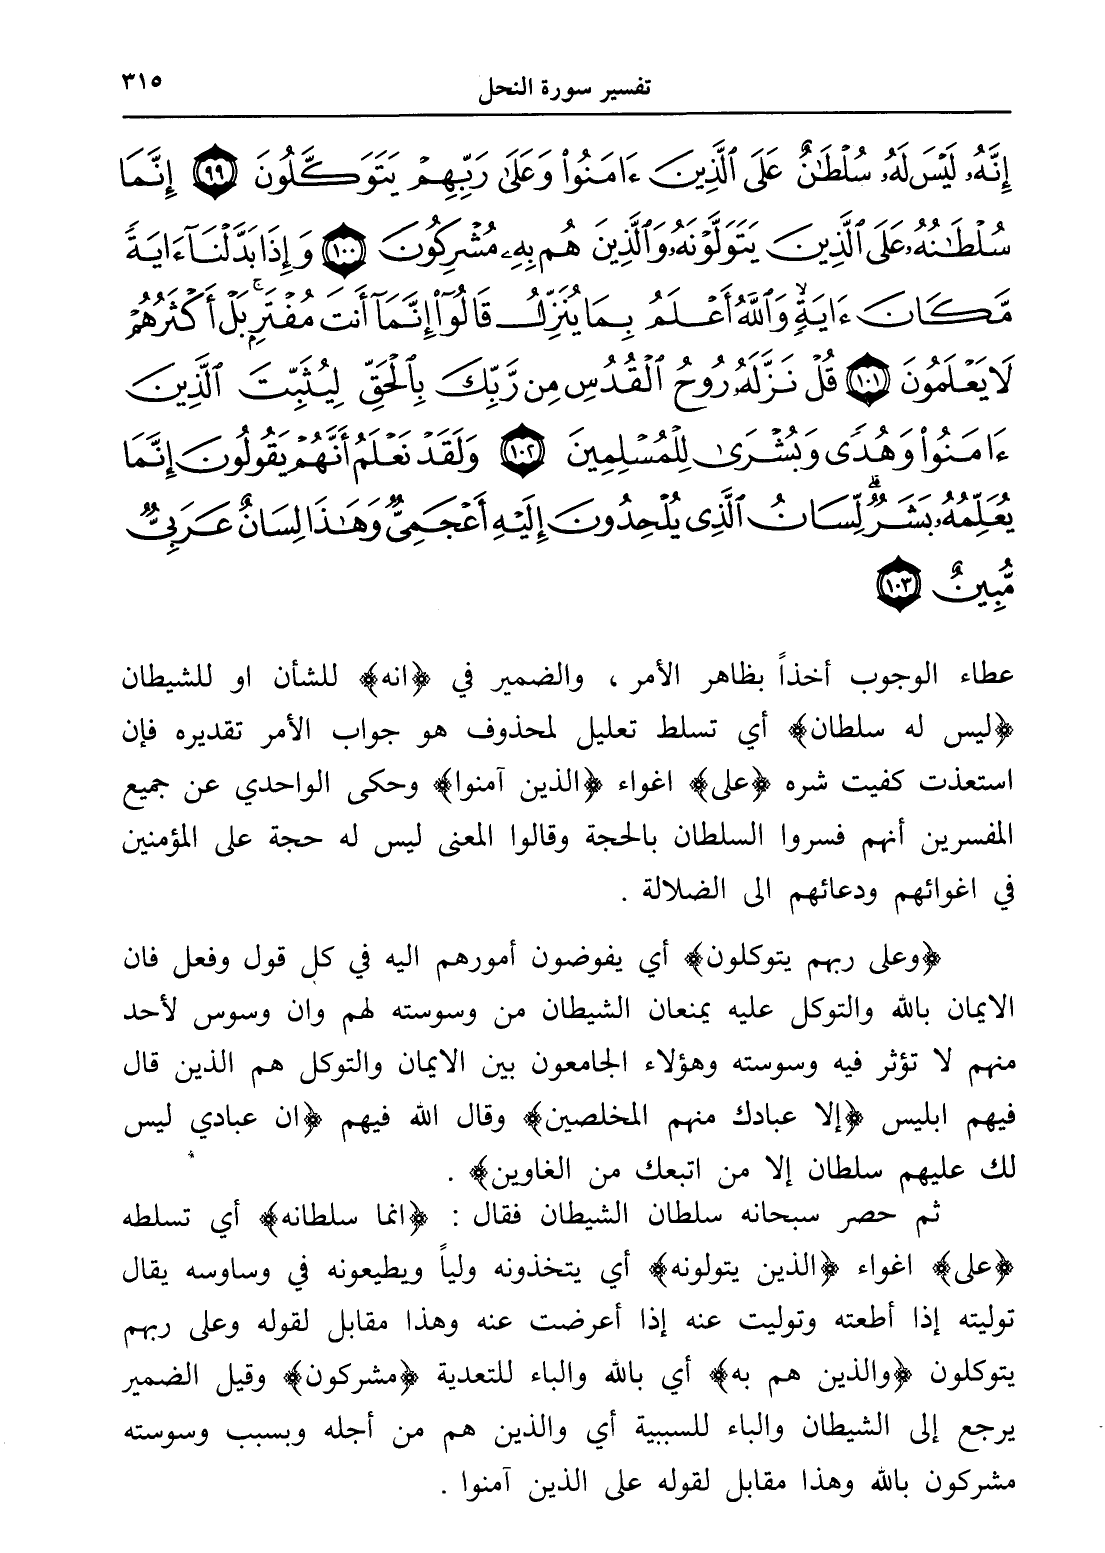 تفسير سورة النحل ٣١٥
إِنَّهُۥ لَيْسَ لَهُۥ سُلْطَٰنٌ عَلَى ٱلَّذِينَ ءَامَنُوا۟ وَعَلَىٰ رَبِّهِمْ يَتَوَكَّلُونَ ٩٩ إِنَّمَا
سُلْطَٰنُهُۥ عَلَى ٱلَّذِينَ يَتَوَلَّوْنَهُۥ وَٱلَّذِينَ هُم بِهِۦ مُشْرِكُونَ ١٠٠ وَإِذَا بَدَّلْنَآ ءَايَةً
مَّكَانَ ءَايَةٍ ۙ وَٱللَّهُ أَعْلَمُ بِمَا يُنَزِّلُ قَالُوٓا۟ إِنَّمَآ أَنتَ مُفْتَرٍۭ ۚ بَلْ أَكْثَرُهُمْ
لَا يَعْلَمُونَ ١٠١ قُلْ نَزَّلَهُۥ رُوحُ ٱلْقُدُسِ مِن رَّبِّكَ بِٱلْحَقِّ لِيُثَبِّتَ ٱلَّذِينَ
ءَامَنُوا۟ وَهُدًى وَبُشْرَىٰ لِلْمُسْلِمِينَ ١٠٢ وَلَقَدْ نَعْلَمُ أَنَّهُمْ يَقُولُونَ إِنَّمَا
يُعَلِّمُهُۥ بَشَرٌ ۗ لِّسَانُ ٱلَّذِى يُلْحِدُونَ إِلَيْهِ أَعْجَمِىٌّ وَهَٰذَا لِسَانٌ عَرَبِىٌّ
مُّبِينٌ ١٠٣
عطاء الوجوب أخذاً بظاهر الأمر ، والضمير في ﴿انه﴾ للشأن او للشيطان
﴿ليس له سلطان﴾ أي تسلط تعليل لمحذوف هو جواب الأمر تقديره فإن
استعذت كفيت شره ﴿على﴾ اغواء ﴿الذين آمنوا﴾ وحكى الواحدي عن جميع
المفسرين أنهم فسروا السلطان بالحجة وقالوا المعنى ليس له حجة على المؤمنين
في اغوائهم ودعائهم الى الضلالة .
﴿وعلى ربهم يتوكلون﴾ أي يفوضون أمورهم اليه في كل قول وفعل فان
الايمان بالله والتوكل عليه يمنعان الشيطان من وسوسته لهم وان وسوس لأحد
منهم لا تؤثر فيه وسوسته وهؤلاء الجامعون بين الايمان والتوكل هم الذين قال
فيهم ابليس ﴿إلا عبادك منهم المخلصين﴾ وقال الله فيهم ﴿ان عبادي ليس
لك عليهم سلطان إلا من اتبعك من الغاوين﴾ .
ثم حصر سبحانه سلطان الشيطان فقال : ﴿انما سلطانه﴾ أي تسلطه
﴿على﴾ اغواء ﴿الذين يتولونه﴾ أي يتخذونه ولياً ويطيعونه في وساوسه يقال
توليته إذا أطعته وتوليت عنه إذا أعرضت عنه وهذا مقابل لقوله وعلى ربهم
يتوكلون ﴿والذين هم به﴾ أي بالله والباء للتعدية ﴿مشركون﴾ وقيل الضمير
يرجع إلى الشيطان والباء للسببية أي والذين هم من أجله وبسبب وسوسته
مشركون بالله وهذا مقابل لقوله على الذين آمنوا .